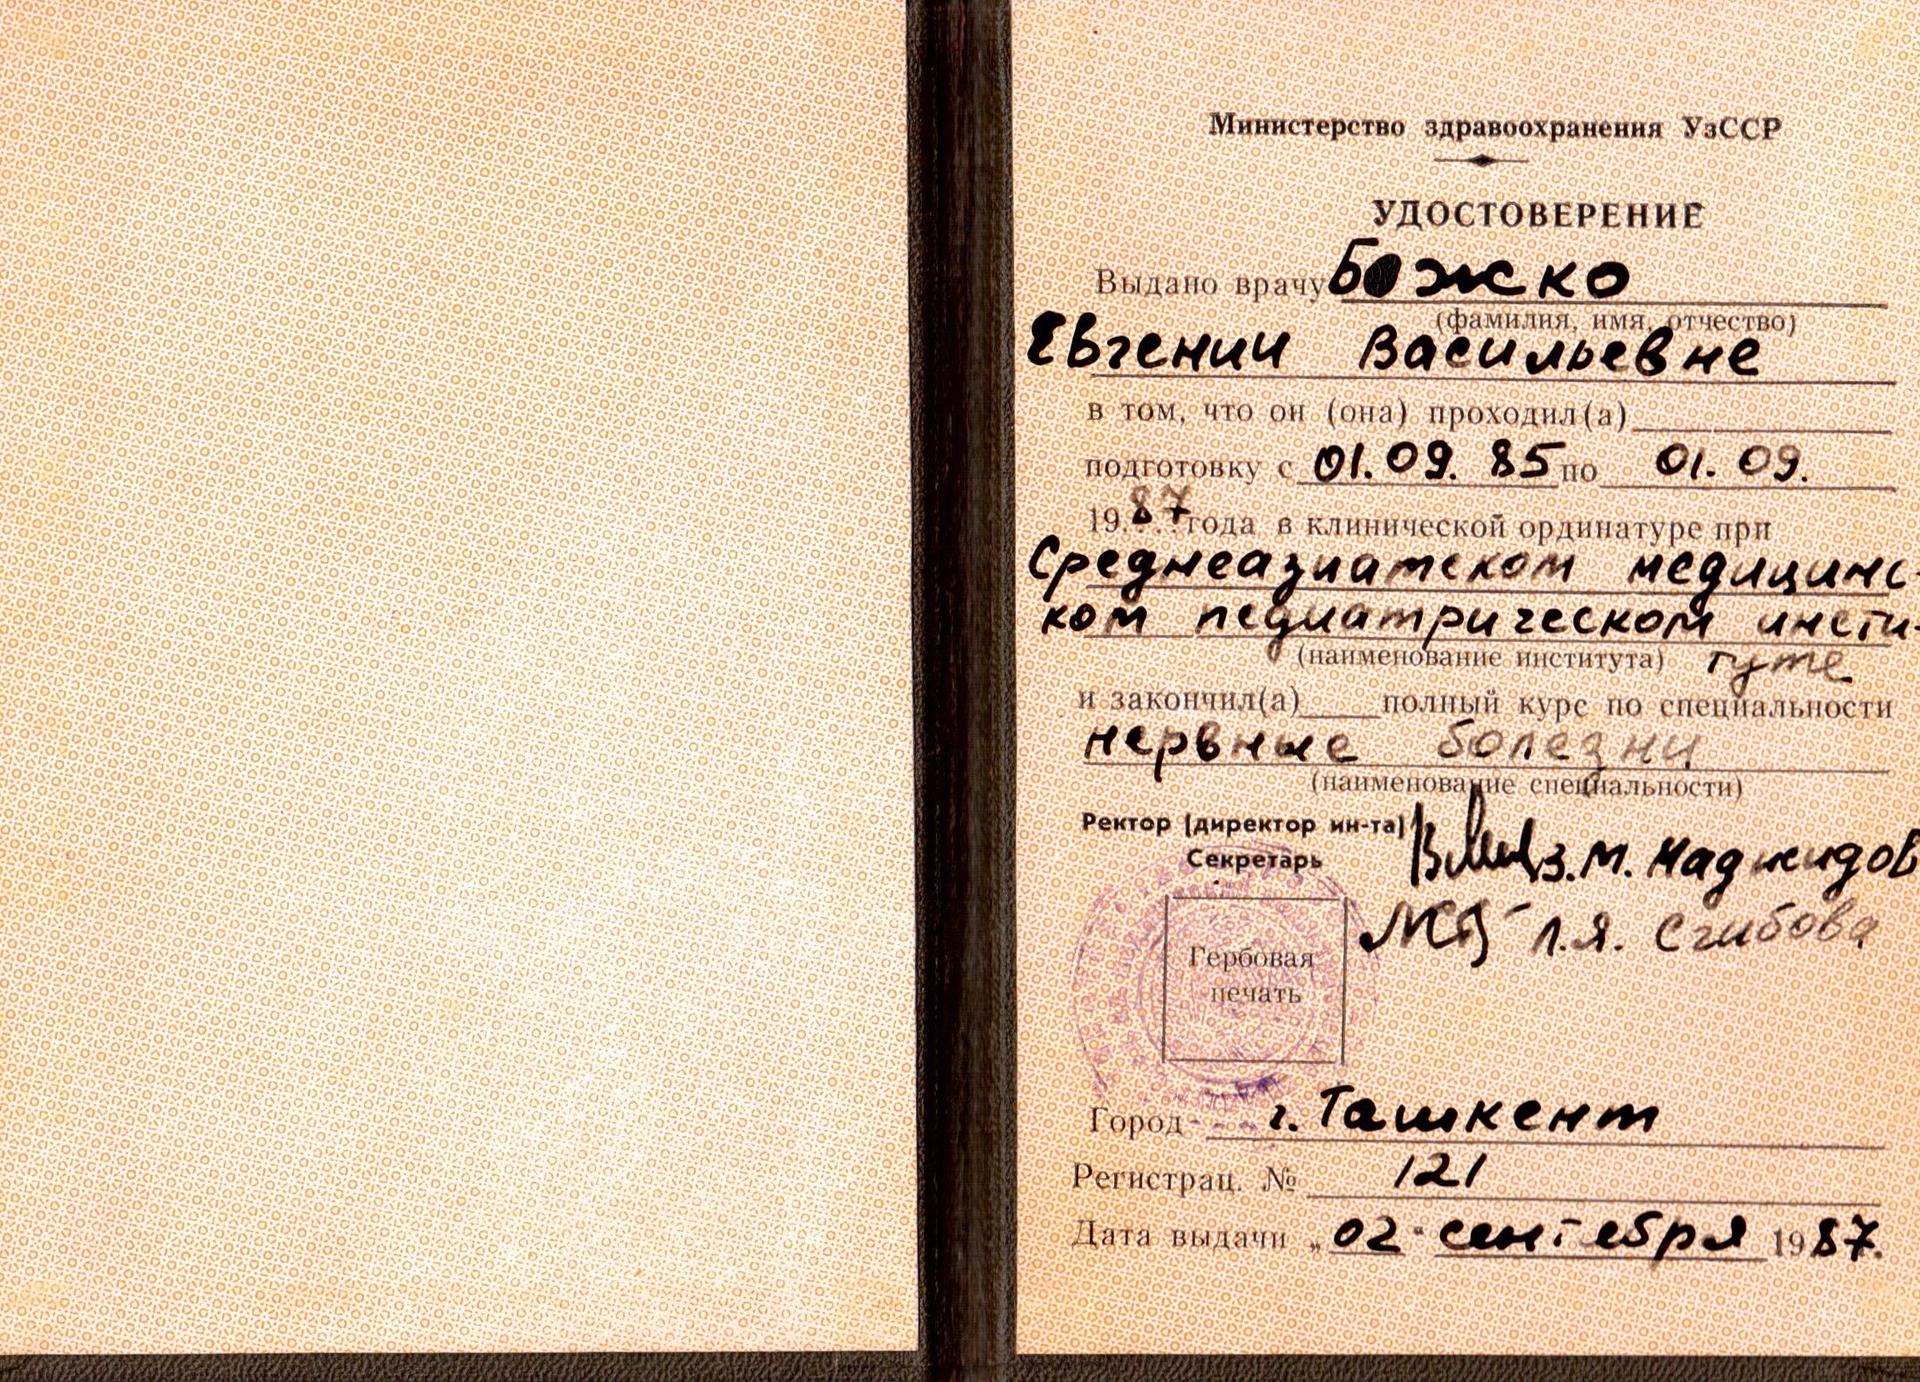 Министерство здравоохранения УзССР
УДОСТОВЕРЕНИЕ
Выдано врачу Божко
(фамилия, имя, отчество)
Евгении Васильевне
в том, что он (она) проходил(а)
подготовку с 01.09.85 по 01.09.
1987 года в клинической ординатуре при
Среднеазиатском медицинс-
ком педиатрическом инсти-
(наименование института) туте
и закончил(а) полный курс по специальности
нервные болезни
(наименование специальности)
Ректор (директор ин-та) В.М. Маджидов
Секретарь
Л.Я. Сгибова
Гербовая
печать
Город г. Ташкент
Регистрац. № 121
Дата выдачи „02" сентября 1987.